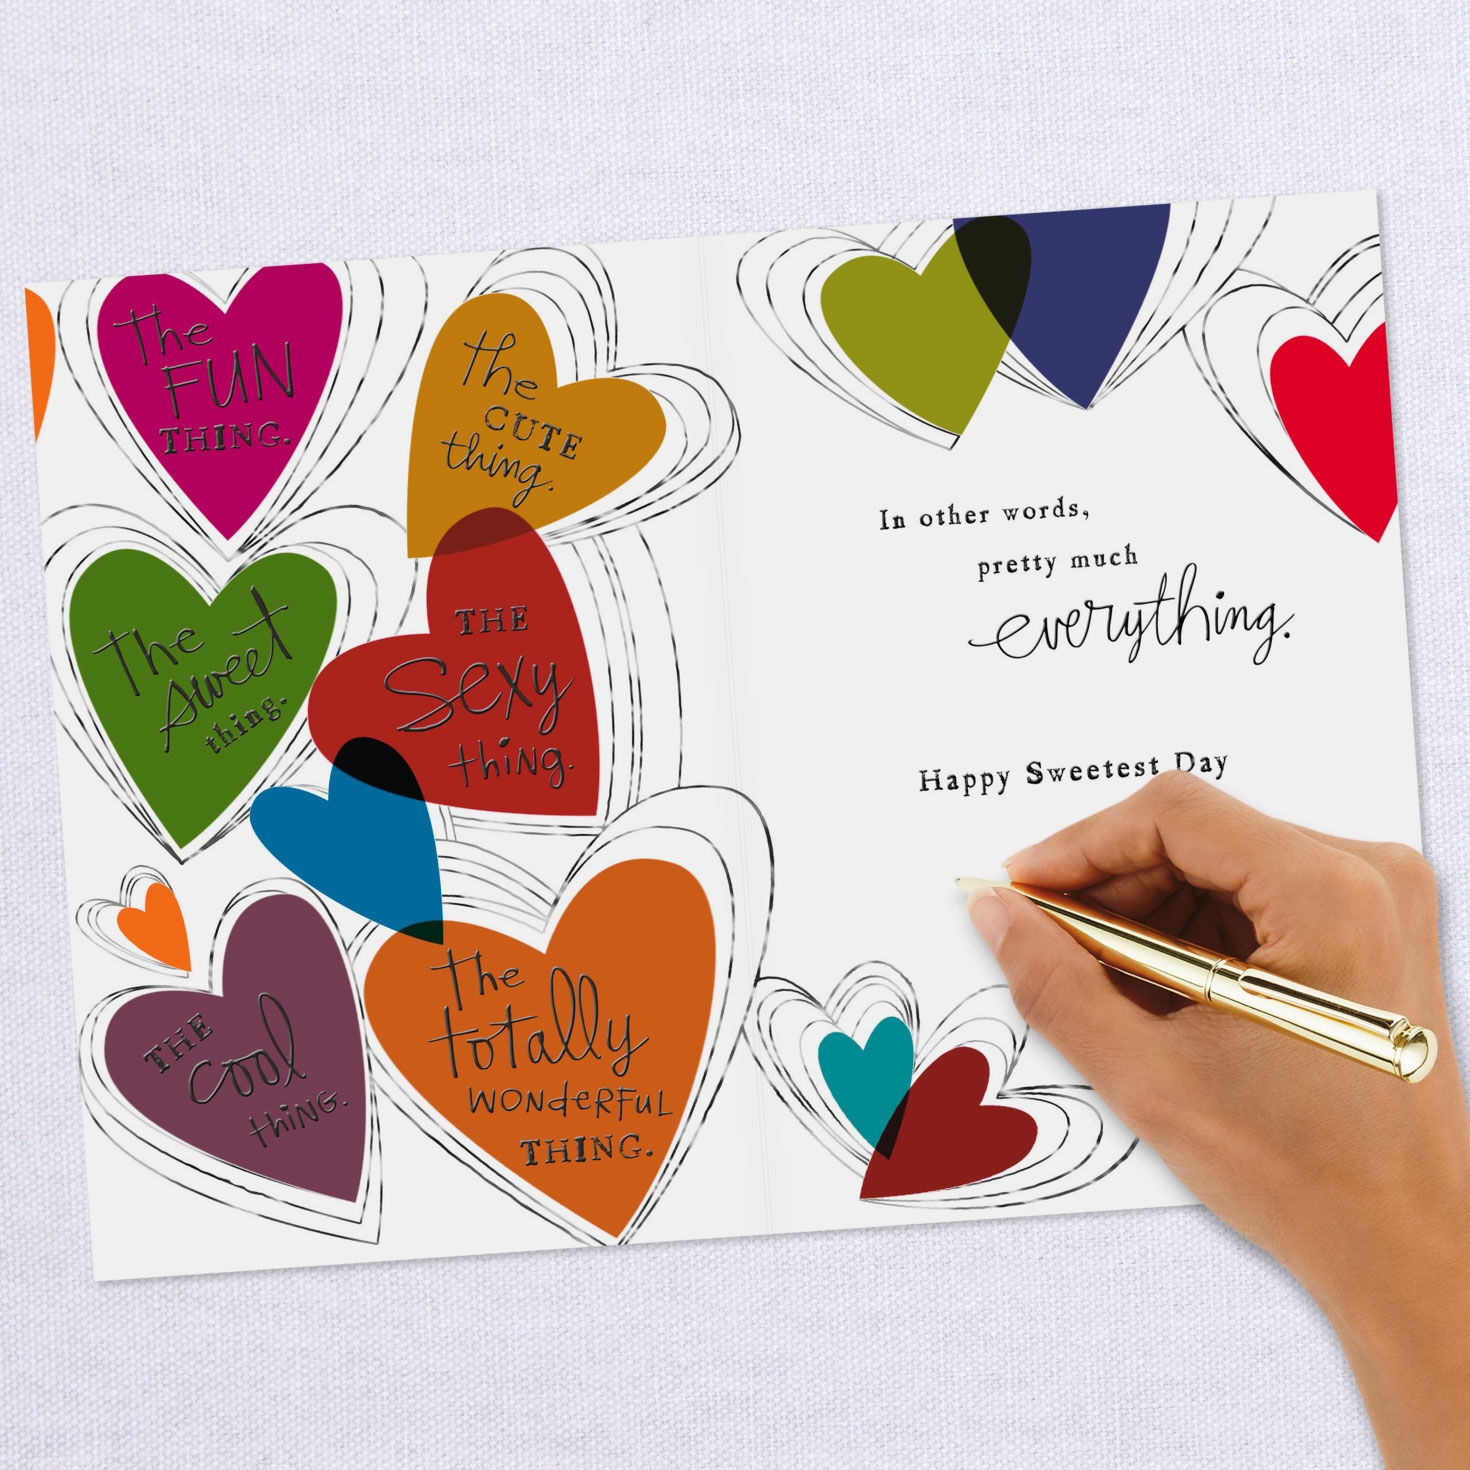 The
FUN
THING.
The
CUTE
thing.
The
sweet
thing.
THE
Sexy
thing.
THE
cool
thing.
The
totally
WONdeRFUL
THING.
In other words,
pretty much
everything.
Happy Sweetest Day